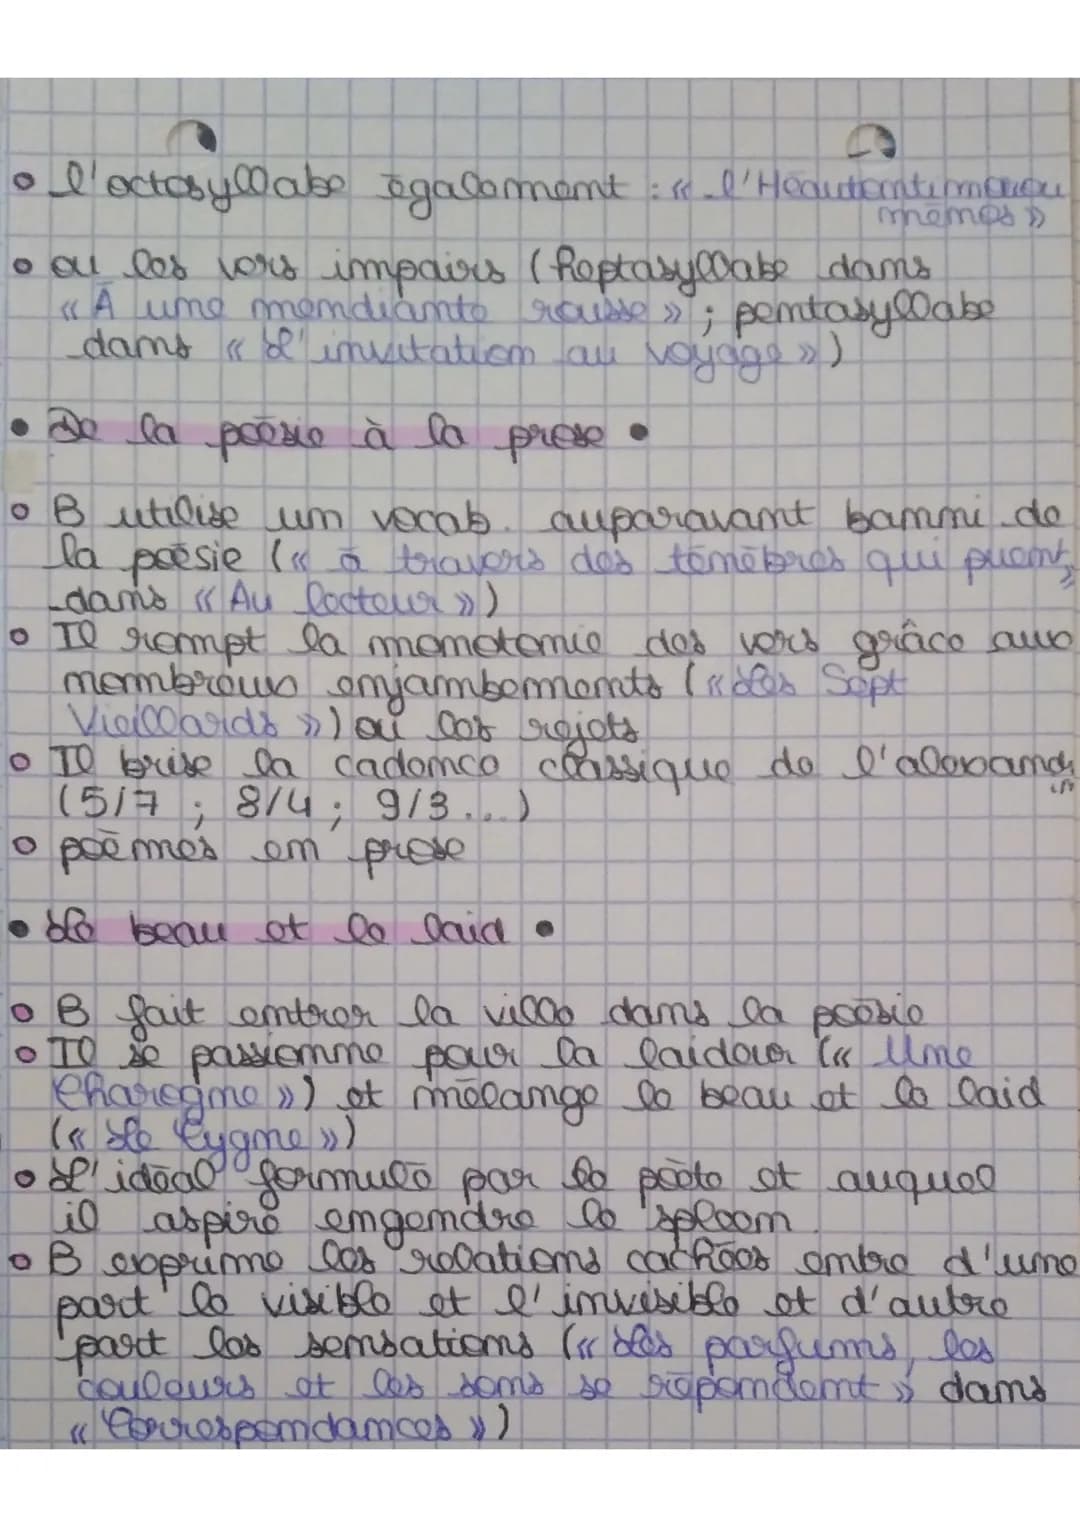 l'octosyllabe également : « l'Héautontimorou
mêmos »
ou les vers impairs (heptasyllabe dans
« À une mendiante rousse » ; pentasyllabe
dans « L'invitation au voyage »)
• De la poésie à la prose •
B utilise un vocab. auparavant banni de
la poésie (« à travers des ténèbres qui puent »
dans « Au lecteur »)
Il rompt la monotonie des vers grâce aux
nombreux enjambements (« Les Sept
Vieillards ») ou les rejets
Il brise la cadence classique de l'alexand
rin
(5/7 ; 8/4 ; 9/3...)
poèmes en prose
• Le beau et le laid •
B fait entrer la ville dans la poésie
Il se passionne pour la laideur (« Une
Charogne ») et mélange le beau et le laid
(« Le Cygne »)
L'idéal formulé par le poète et auquel
il aspire engendre le spleen.
B exprime les relations cachées entre d'une
part le visible et l'invisible et d'autre
part les sensations (« Les parfums, les
couleurs et les sons se répondent » dans
« Correspondances »)